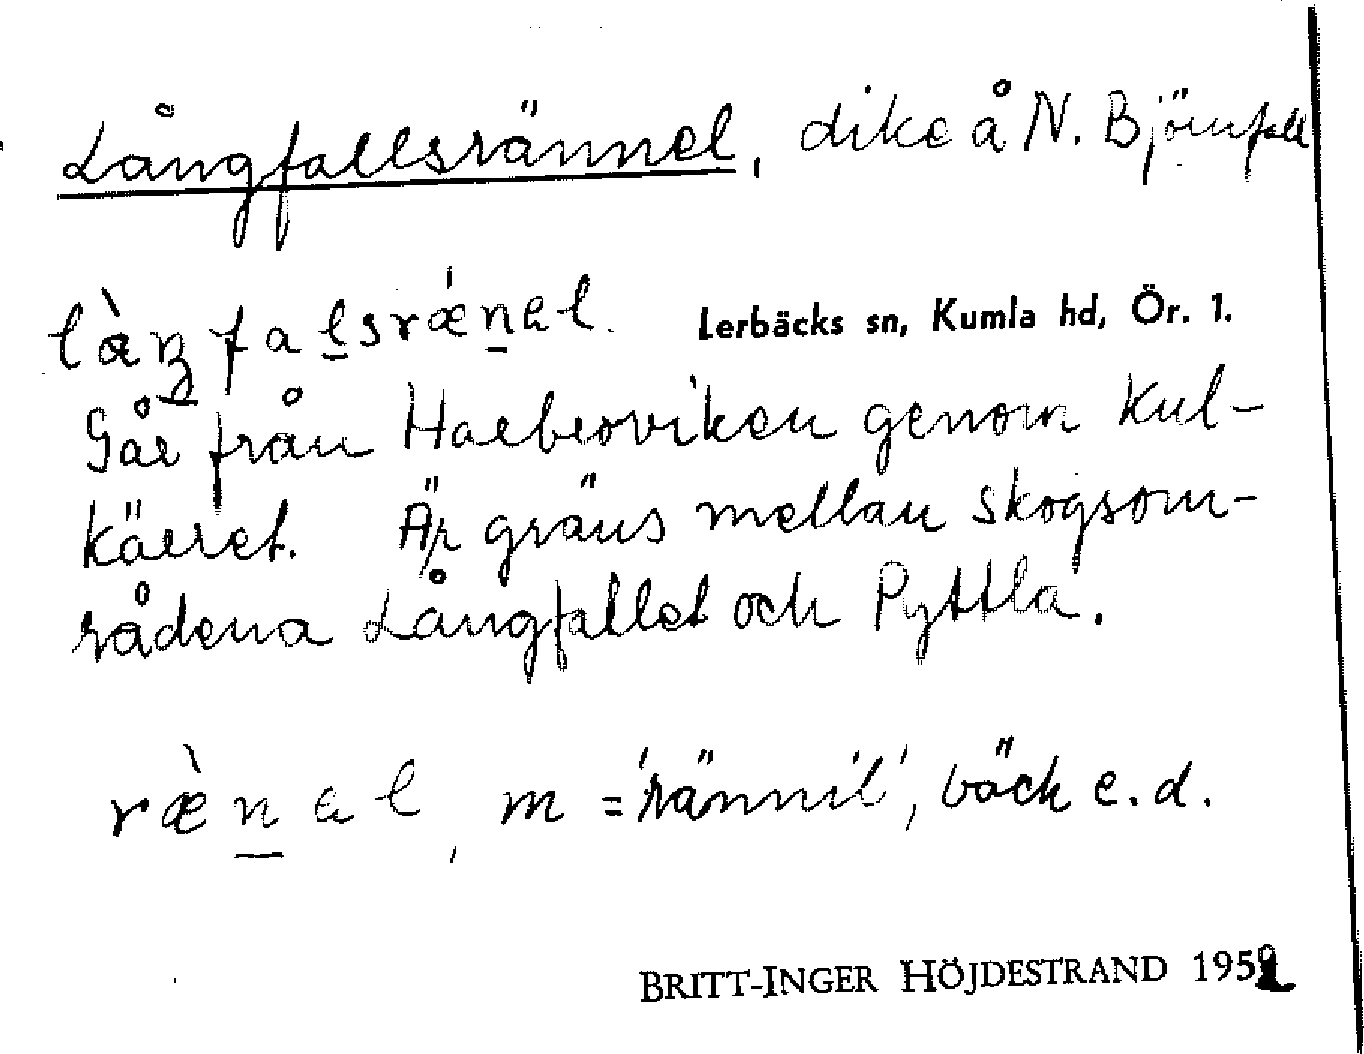 Långfallsrännel, dike å N. Björnfall
Lerbäcks sn, Kumla hd, Ör. 1.
Går från Harbroviken genom Kul-
kärret. Är gräns mellan skogsom-
rådena Långfallet och Pyttla.
rænal, m = 'rännil', bäck e.d.
BRITT-INGER HÖJDESTRAND 195